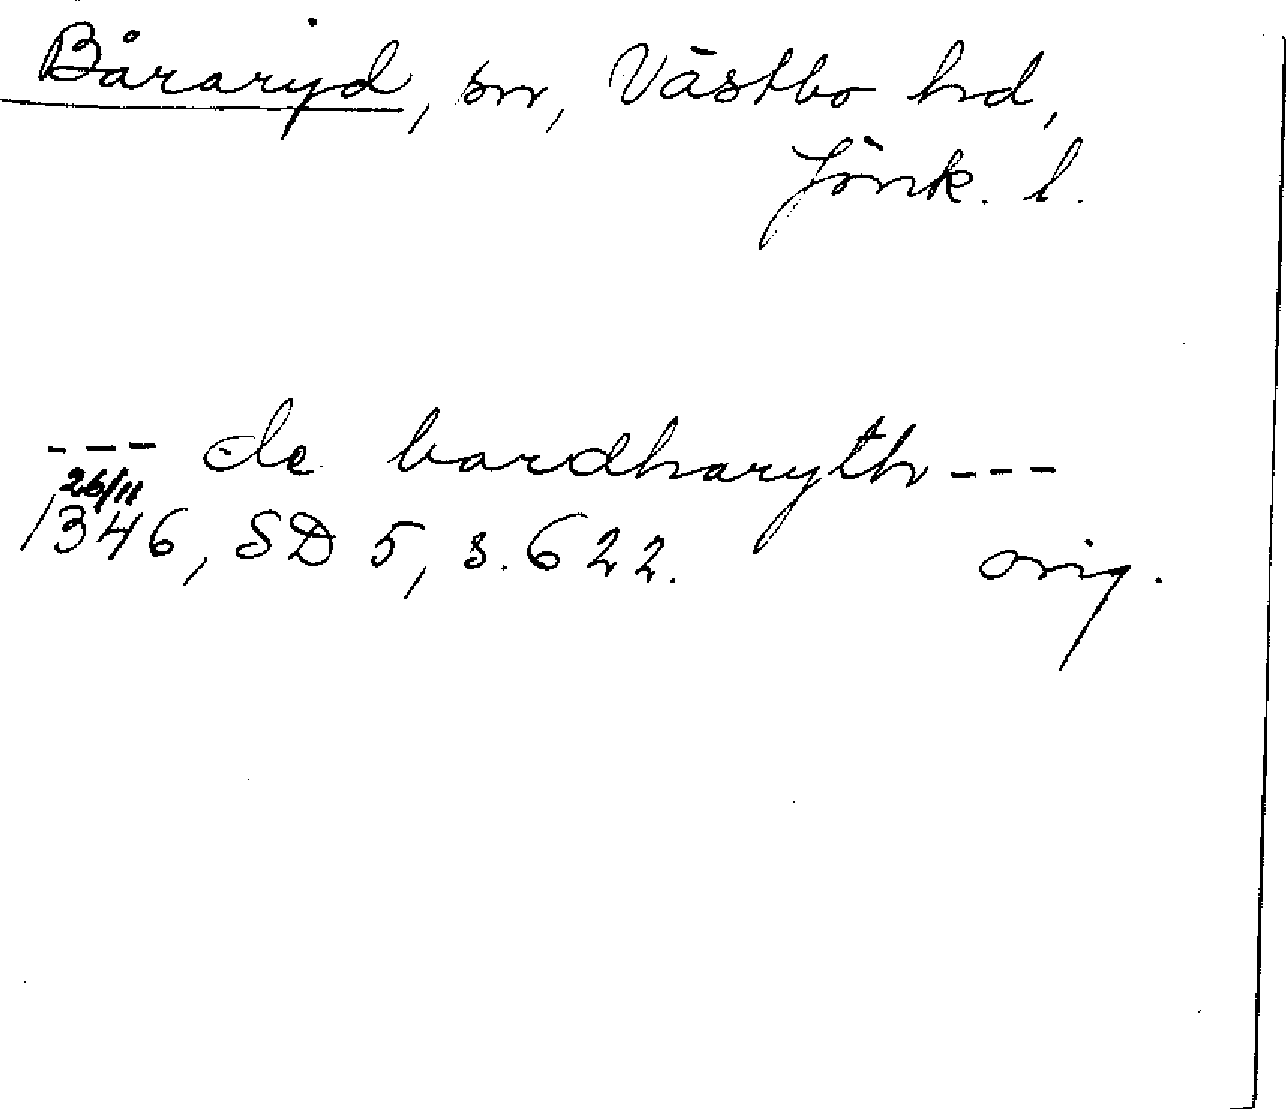 Båraryd, sn, Västbo hd,
Jönk. l.
--- de bardharyth ---
26/11
1346, SD 5, s. 622. orig.